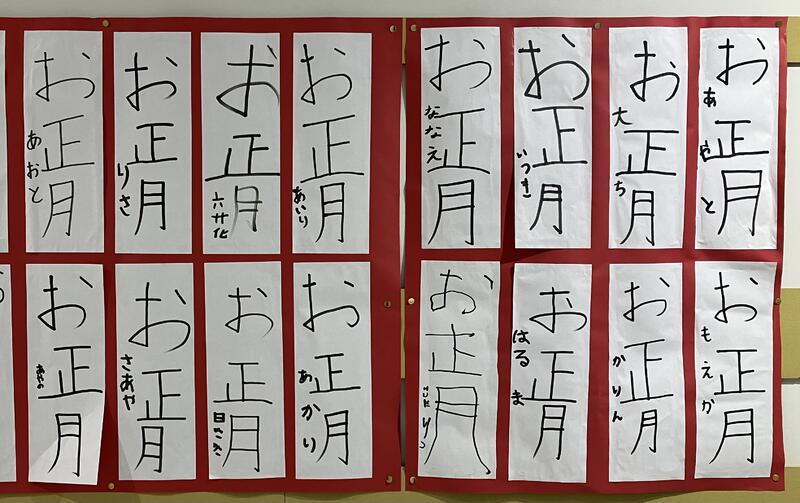 お正月
あおと
お正月
りさ
お正月
六花
お正月
あいり
お正月
ななえ
お正月
いつき
お正月
大ち
お正月
あやと
お正月
あやの
お正月
さあや
お正月
お正月
あかり
お正月
お正月
はるま
お正月
かりん
お正月
もえか